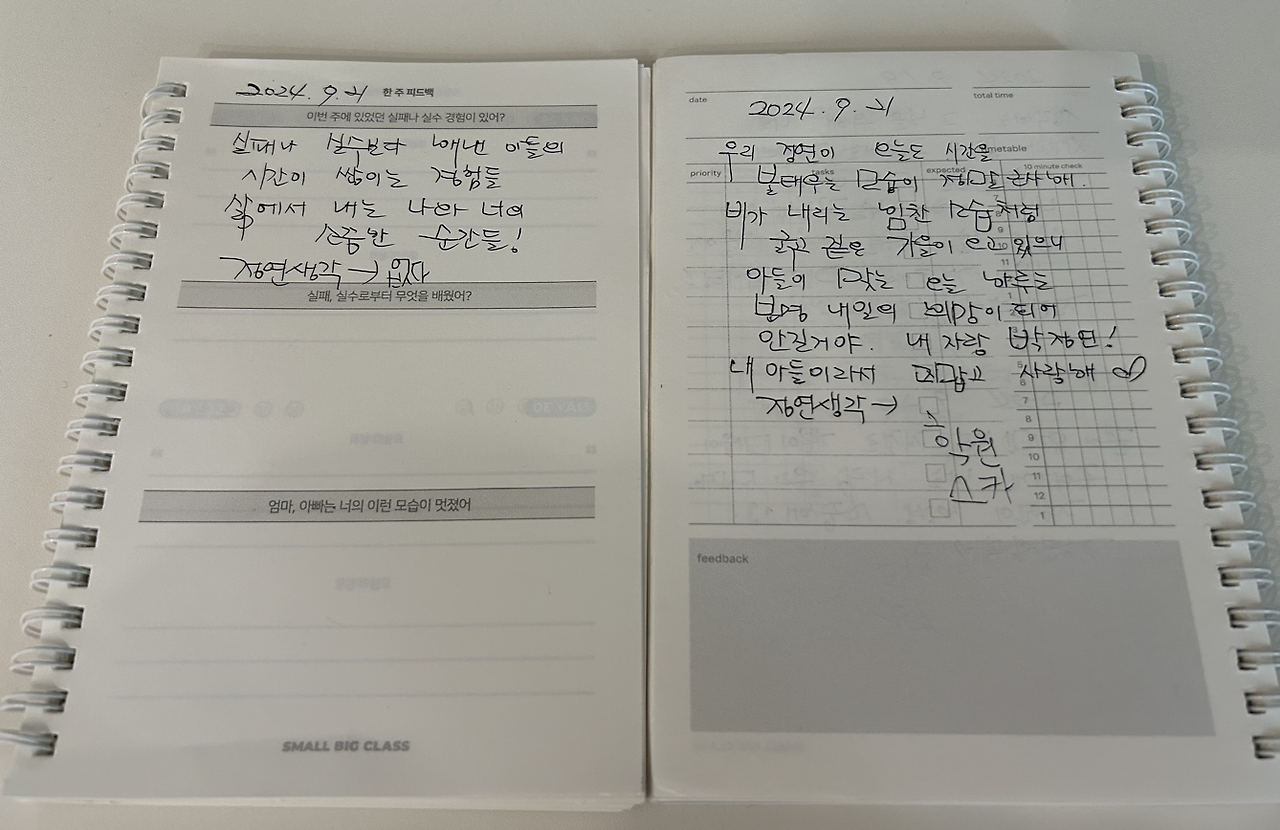 2024. 9. 21 한 주 피드백
이번 주에 있었던 실패나 실수 경험이 있어?
실패나 실수보다 해낸 아들의
시간이 쌓이는 경험들
삶에서 내는 나와 너의
소중한 순간들!
정연생각 → 없다
실패, 실수로부터 무엇을 배웠어?
엄마, 아빠는 너의 이런 모습이 멋졌어
SMALL BIG CLASS
date 2024. 9. 21 total time
우리 정연이 오늘도 시간을 timetable
priority tasks expected 10 minute check
불태우는 모습이 정말 근사해.
비가 내리는 힘찬 모습처럼
굵고 짙은 가을이 오고 있으니
아들이 맞는 오늘 하루는
분명 내일의 희망이 되어
안길거야. 내 자랑 박정연!
내 아들이라서 고맙고 사랑해 ♡
정연생각 →
학원
스카
9
10
11
5
6
7
8
9
10
11
12
1
feedback